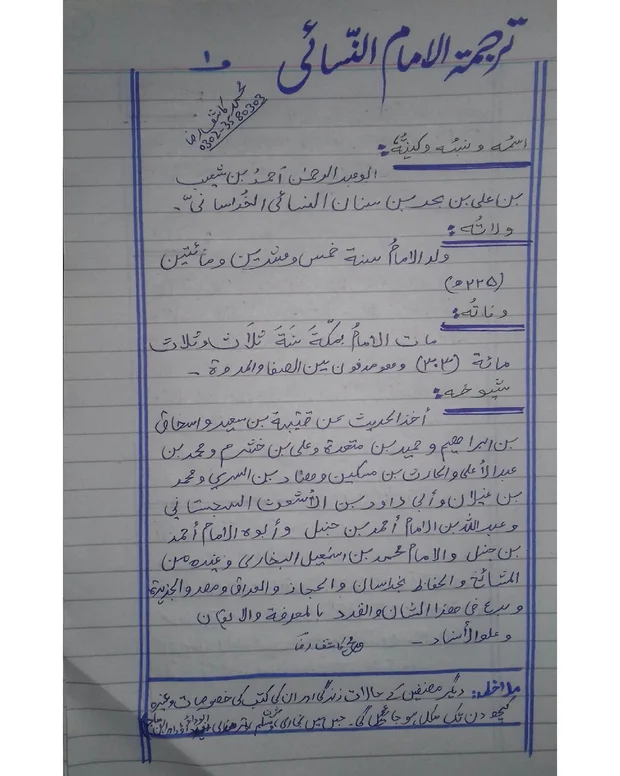 ترجمۃ الامام النّسائی
محمد کاشف رضا
0302-3580303
اسمُہ و نسبُہ وکنیتُہٗ:
ابوعبدالرحمٰن احمدُ بن شعیب
بن علی بن بحر بن سنان النسائی الخُراسانیّ۔
ولادتُہ:
ولد الامامُ سنة خمس وعشرین ومائتین
(۲۲۵ھ)
وفاتُہ:
مات الامامُ بمکّةَ سَنَةَ ثلَاث وثلاث
مائة (۳۰۳) وھو مدفون بین الصفا والمروة ۔
شیوخہ:
أخذ الحدیث عن قتیبة بن سعید و اسحاق
بن ابراھیم و حمید بن مسعدة وعلی بن خشرم و محمد بن
عبد الأعلی والحارث بن مسکین وھناد بن السری و محمد
بن غیلان وأبی داود بن الأشعث السجستانی
و عبد اللہ بن الامام أحمد بن حنبل وأبوہ الامام أحمد
بن حنبل والامام محمد بن اسمٰعیل البخاری و غیرہ من
المشائخ والحفاظ بخراسان والحجاز والعراق ومصر والجزیرة
وبرع فی ھذا الشان والفرد بالمعرفة والاتقان
وعلو الأسناد ۔
محمد کاشف رضا
ملاحظہ: دیگر مصنفین کے حالات زندگی اور ان کی کتب کی خصوصیات وغیرہ
کچھ دن تک مکمل ہو جائیں گی۔ جس میں بخاری مسلم ترمذی ابوداؤد ابن ماجہ